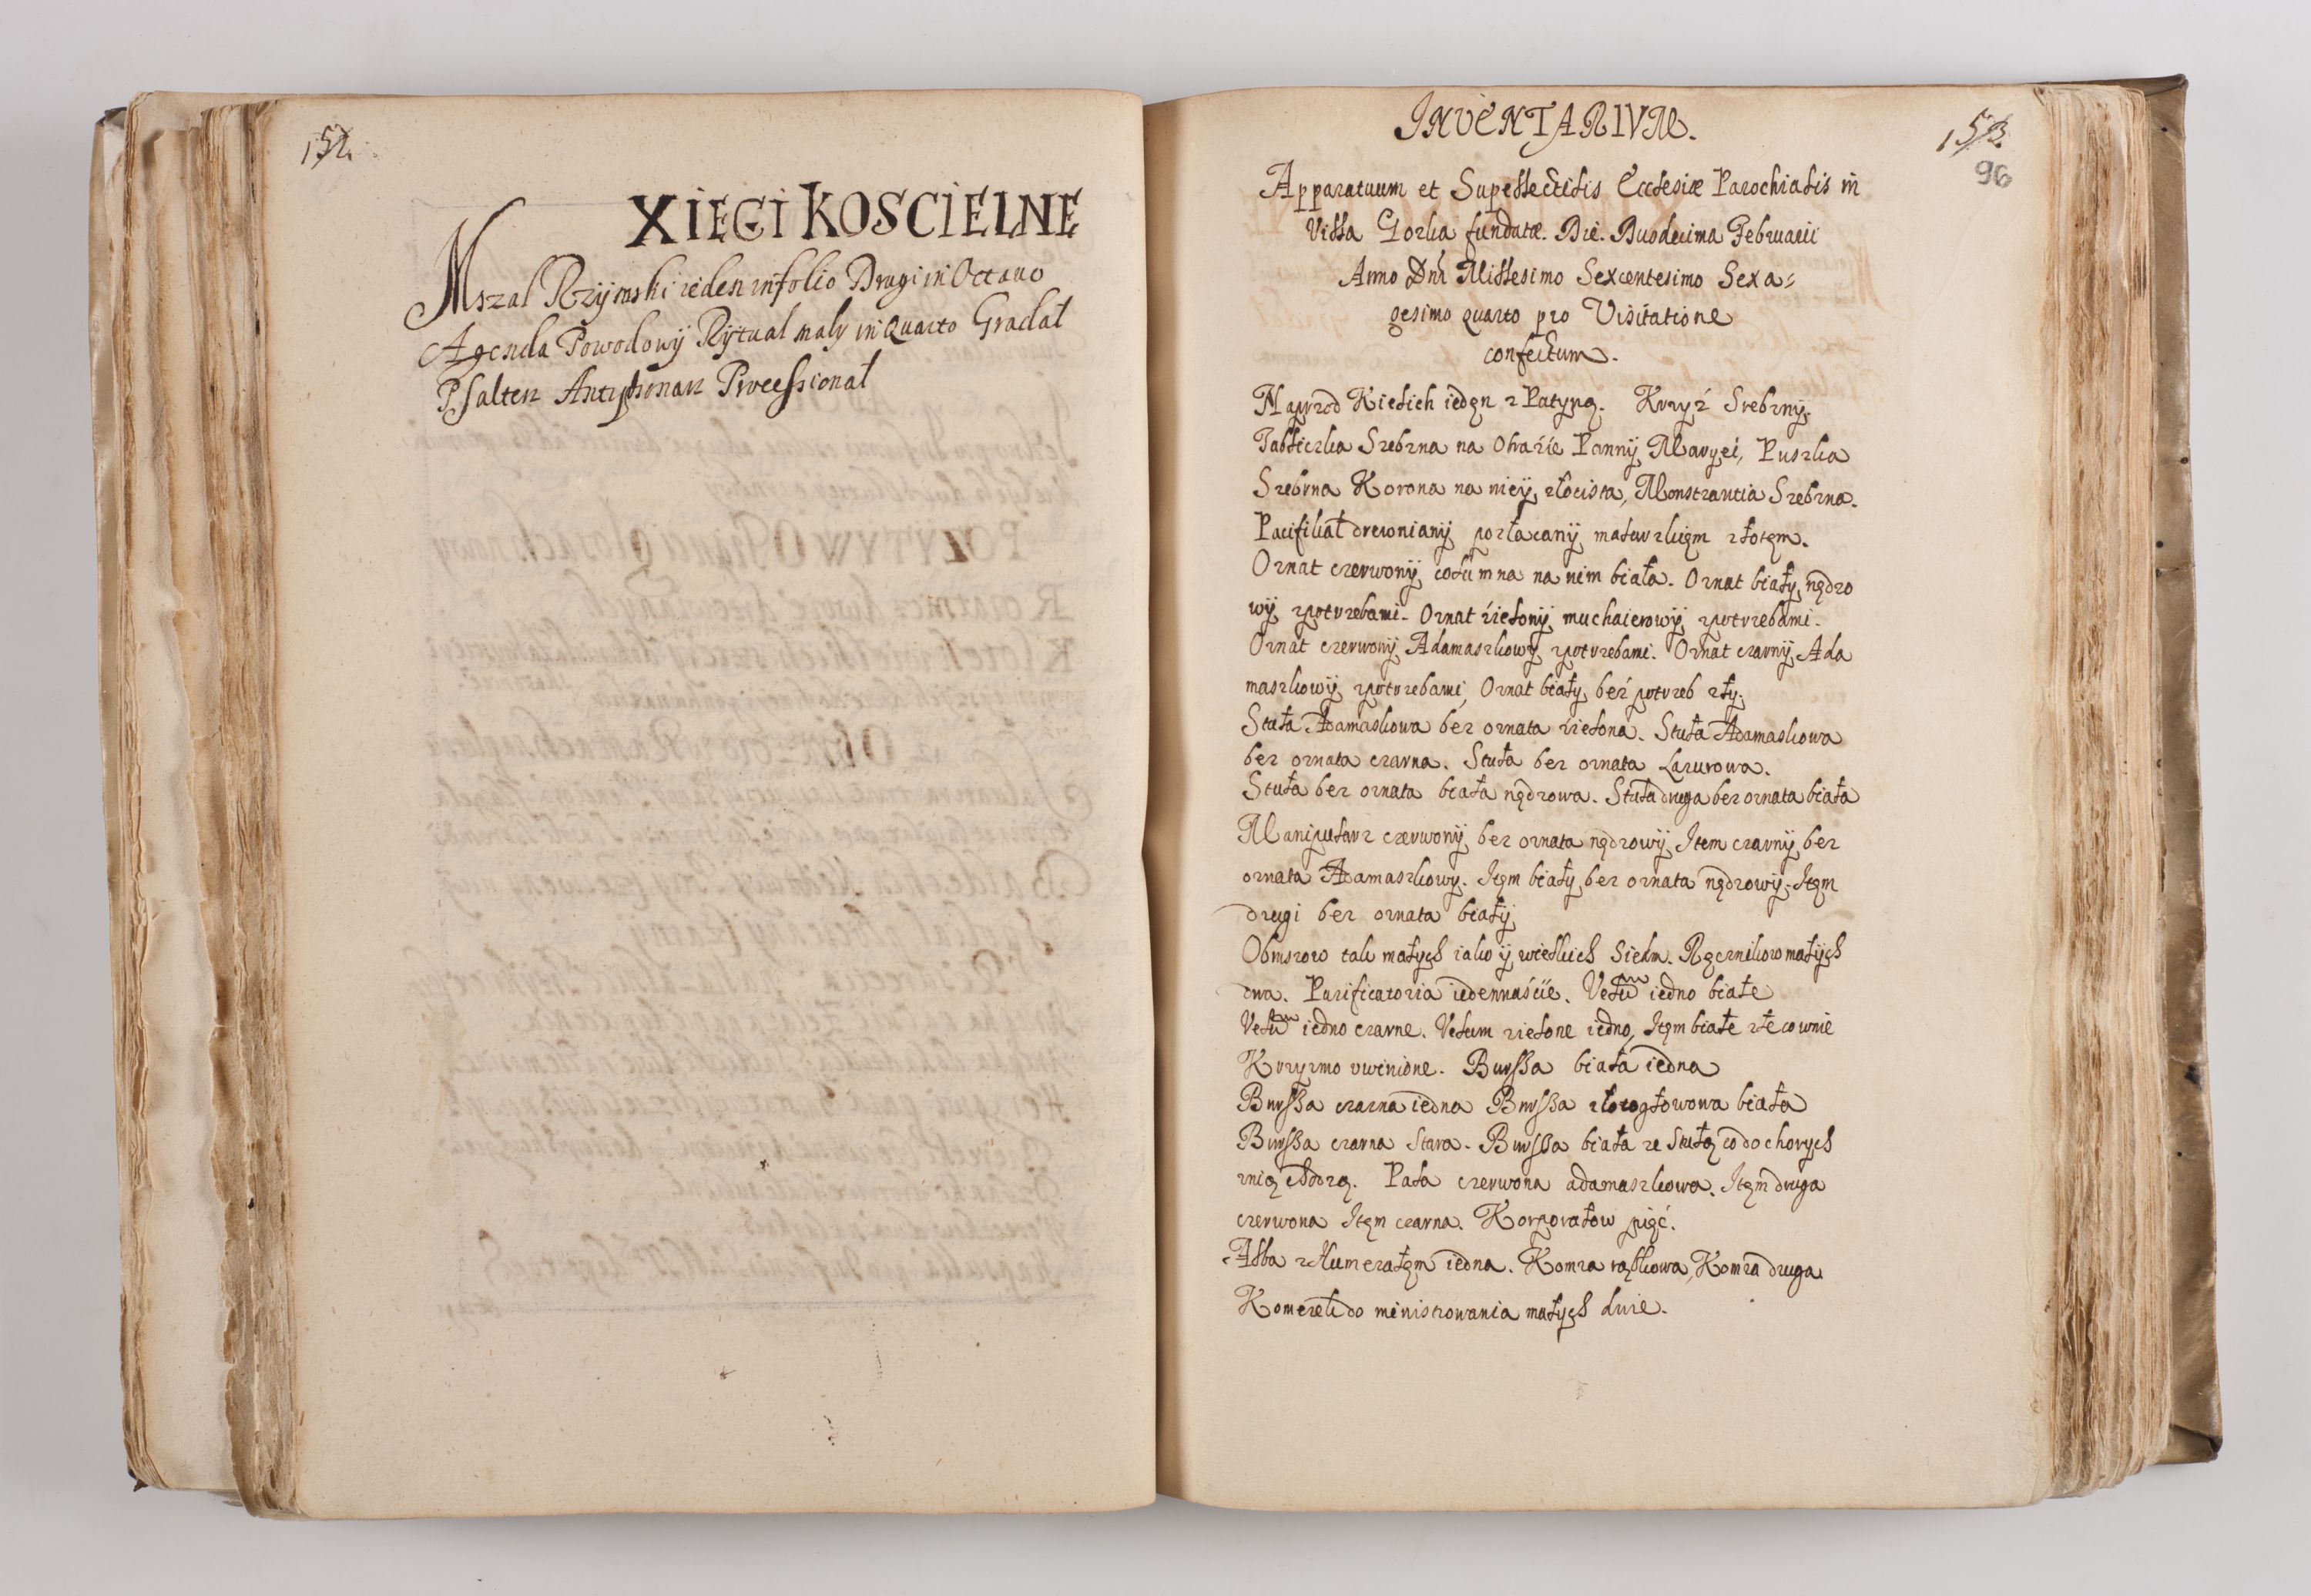 152.
XIEGI KOSCIELNE
Mszal Rzijmski ieden in folio Drugi in Octauo
Agenda Powodowij Rijtual maly in Quarto Gradał
Psalterz Antyphonarz Processionał
INVENTARIVM.
153
96
Apparatuum et Supellectilis Ecclesiæ Parochialis in
Villa Gorka fundatæ. Die. Duodecima Februarii
Anno Dni Millesimo Sexcentesimo Sexa=
gesimo quarto pro Visitatione
confectum.
Naprzod Kielich ieden z Patyną. Krzyź Srebrny.
Tabliczka Srebrna na Obraźie Panny Maryei, Puszka
Srebrna Korona na niey złocista, Monstrantia Srebrna.
Pacifikał drewniany pozłacany malarzkięm złotęm.
Ornat czerwony columna na nim biała. Ornat biały nędro
wy zpotrzebami. Ornat źielony muchaierowy zpotrzebami.
Ornat czerwony Adamaszkowy zpotrzebami. Ornat czarny Ada
maszkowy zpotrzebami, Ornat biały beź potrzeb zły.
Stuła Adamaskowa bez ornata zielona. Stuła Adamaskowa
bez ornata czarna. Stuła bez ornata Lazurowa.
Stuła bez ornata biała nędrowa. Stuła druga bez ornata biała
Manipularz czerwony bez ornata nędrowy, Item czarny bez
ornata Adamaszkowy. Itęm biały bez ornata nędrowy. Itęm
drugi bez ornata biały
Obrusow tak małych iako y wielkich Siedm. Ręcznikow małych
dwa. Purificatoria iedennaście. Velũm iedno białe
Velũm iedno czarne. Velum zielone iedno, Itęm białe
Krzyzmo uwinione. Burssa biała iedna
Burssa czarna iedna Burssa złotogłowowa biała
Burssa czarna Stara. Burssa biała ze Stułą co do chorych
znią chodzą. Pala czerwona adamaszkowa. Itęm druga
czerwona Itęm czarna. Korporałow pięć.
Alba z Humerałęm iedna. Komza rąbkowa, Komza druga
Komeżek do ministrowania małych dwie.